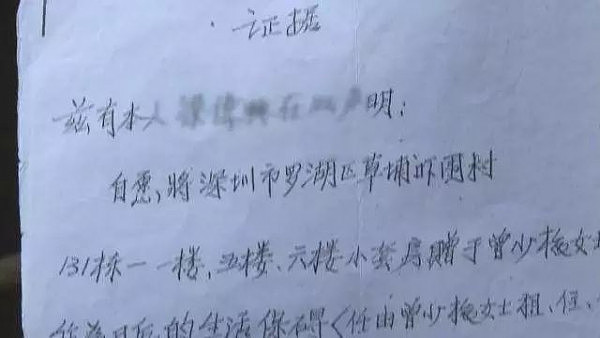 证据
兹有本人 在此声明:
自愿将深圳市罗湖区草埔吓围村
131栋一一楼、五楼、六楼小套房赠于曾少 女士
作为日后的生活保碍〈任由曾少 女士租、住、